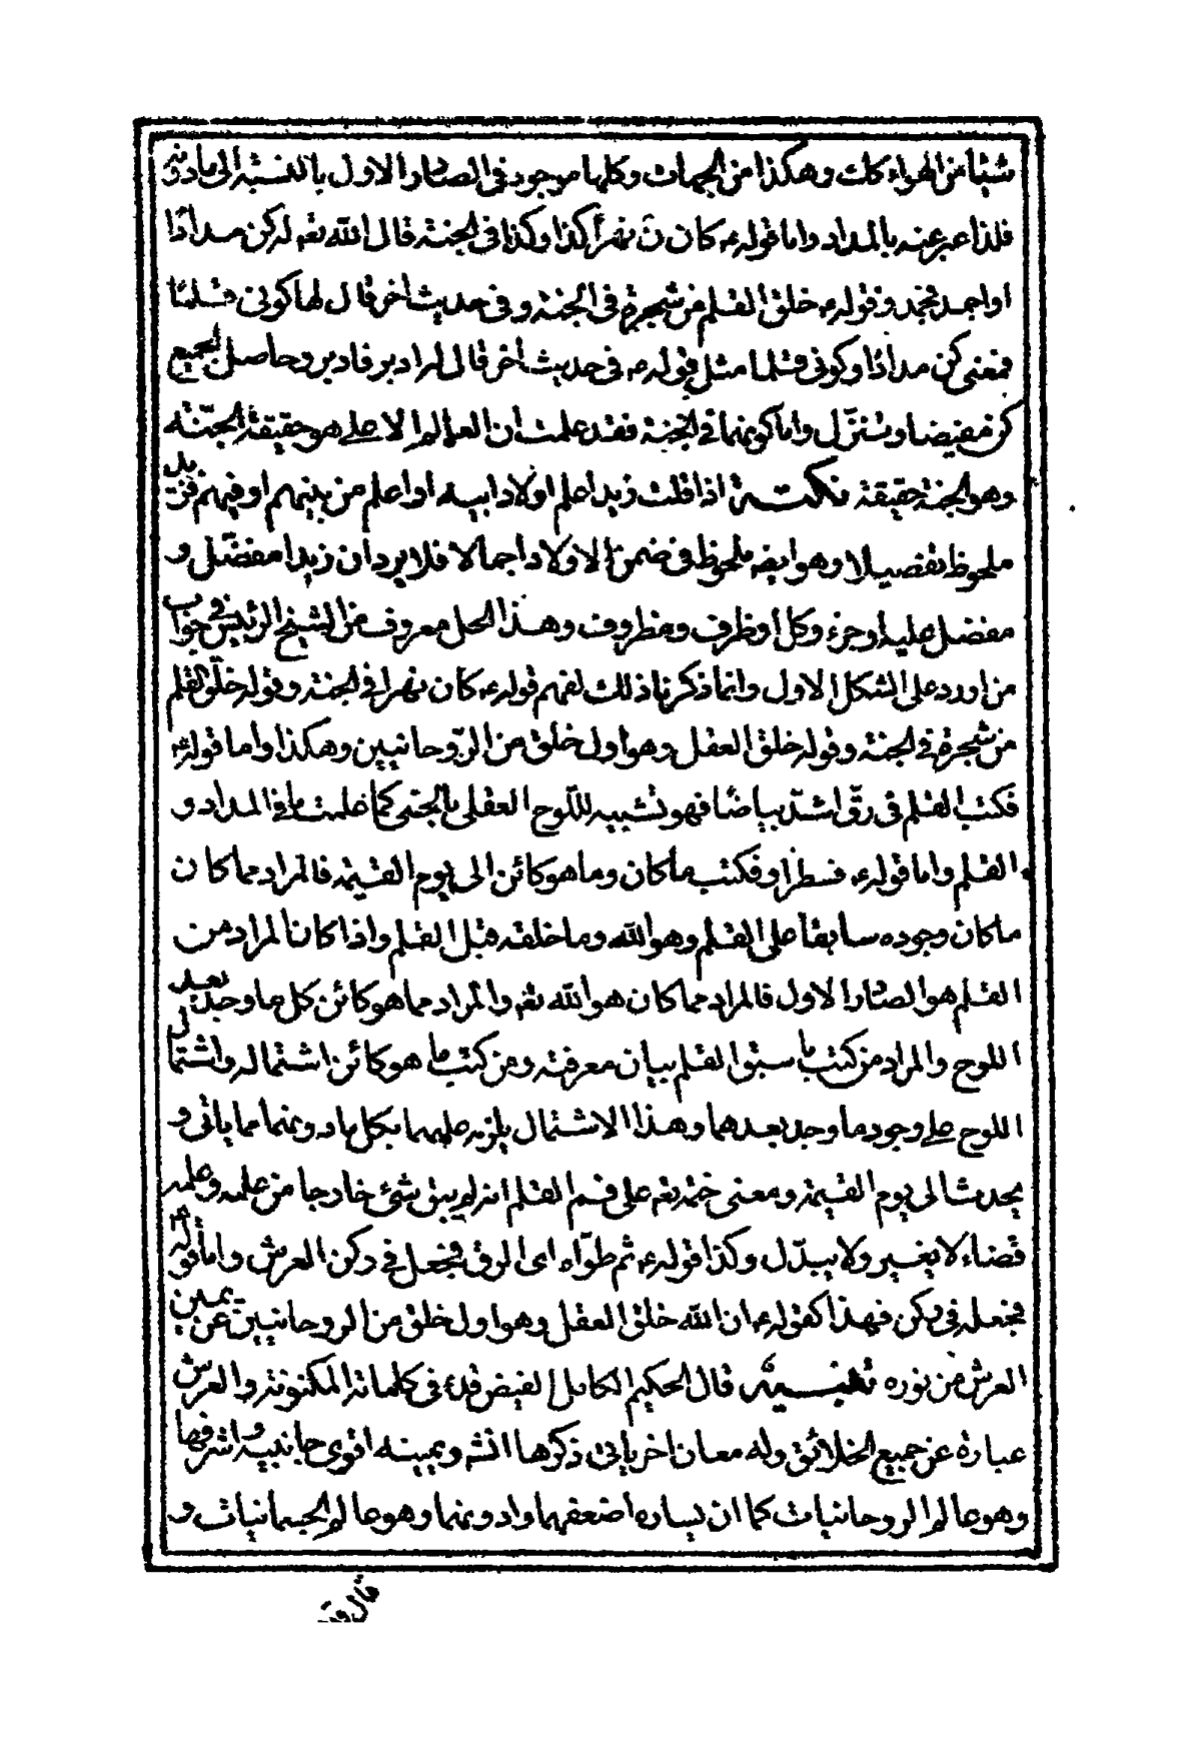 شيئا من الهواء كك وهكذا من الجهات وكلها موجود في الصادر الاول بالنسبة الى مادونه
فلذا عبر عنه بالمداد واما قوله ع كان نَ نهراً كذا وكذا في الجنة قال الله تعه له كن مدادًا
او اجمد فجمد وقوله ع خلق القلم من شجرة في الجنة وفي حديث اخر قال لها كوني قلما
فمعنى كن مدادًا وكوني قلما مثل قوله ع في حديث اخر قال له ادبر فادبر وحاصل الجميع
كن مفيضا وتنزّل واما كونهما في الجنة فقد علمت ان العالم الاعلى هو حقيقة الجنّة
وهو الجنة حقيقة نكتة اذا قلت زيد اعلم اولاد ابيه او اعلم من بينهم او فيهم فزيد
ملحوظ تفصيلا وهو ايضه ملحوظ في ضمن الاولاد اجمالا فلا يرد ان زيدا مفضّل و
مفضل عليه او جزء وكل او ظرف ومظروف وهذا الحل معروف من الشيخ الرئيس في جواب
من اورد على الشكل الاول وانما ذكرنا ذلك لفهم قوله ع كان نهرا في الجنة وقوله خلق القلم
من شجرة في الجنة وقوله خلق العقل وهو اول خلق من الرّوحانيين وهكذا واما قوله ع
فكتب القلم في رقّ اشدّ بياضًا فهو تشبيه للّوح العقلي بالجنى كما علمت ما في المداد و
القلم واما قوله ع فسطرا وفكتب ما كان وما هو كائن الى يوم القيمة فالمراد مما كان
ما كان وجوده سابقا على القلم وهو الله وما خلقه قبل القلم واذا كان المراد من
القلم هو الصادر الاول فالمراد مما كان هو الله تعه والمراد مما هو كائن كل ما وجد بعد
اللوح والمراد من كتب ما سبق القلم بيان معرفته ومن كتب ما هو كائن اشتماله واشتمال
اللوح على وجود ما وجد بعدهما وهذا الاشتمال يلزمه علمهما بكل مادونهما مما ياتي و
يحدث الى يوم القيمة ومعنى ختمه تعه على فم القلم انه لم يبق شئ خارجا من علمه وعلمه
قضاء لا يغير ولا يبدّل وكذا قوله ع ثم طوّاه اى الرق فجعل في ركن العرش واما قوله ع
فجعله في ركن فهذا كقوله ع ان الله خلق العقل وهو اول خلق من الروحانيين عن يمين
العرش من نوره تنبيه قال الحكيم الكامل الفيض قده في كلماته المكنونة والعرش
عبارة عن جميع الخلائق وله معان اخر ياتي ذكرها انشه ويمينه اقوى جانبيه واشرفها
وهو عالم الروحانيات كما ان يساره اضعفهما وادونهما وهو عالم الجسمانيات و